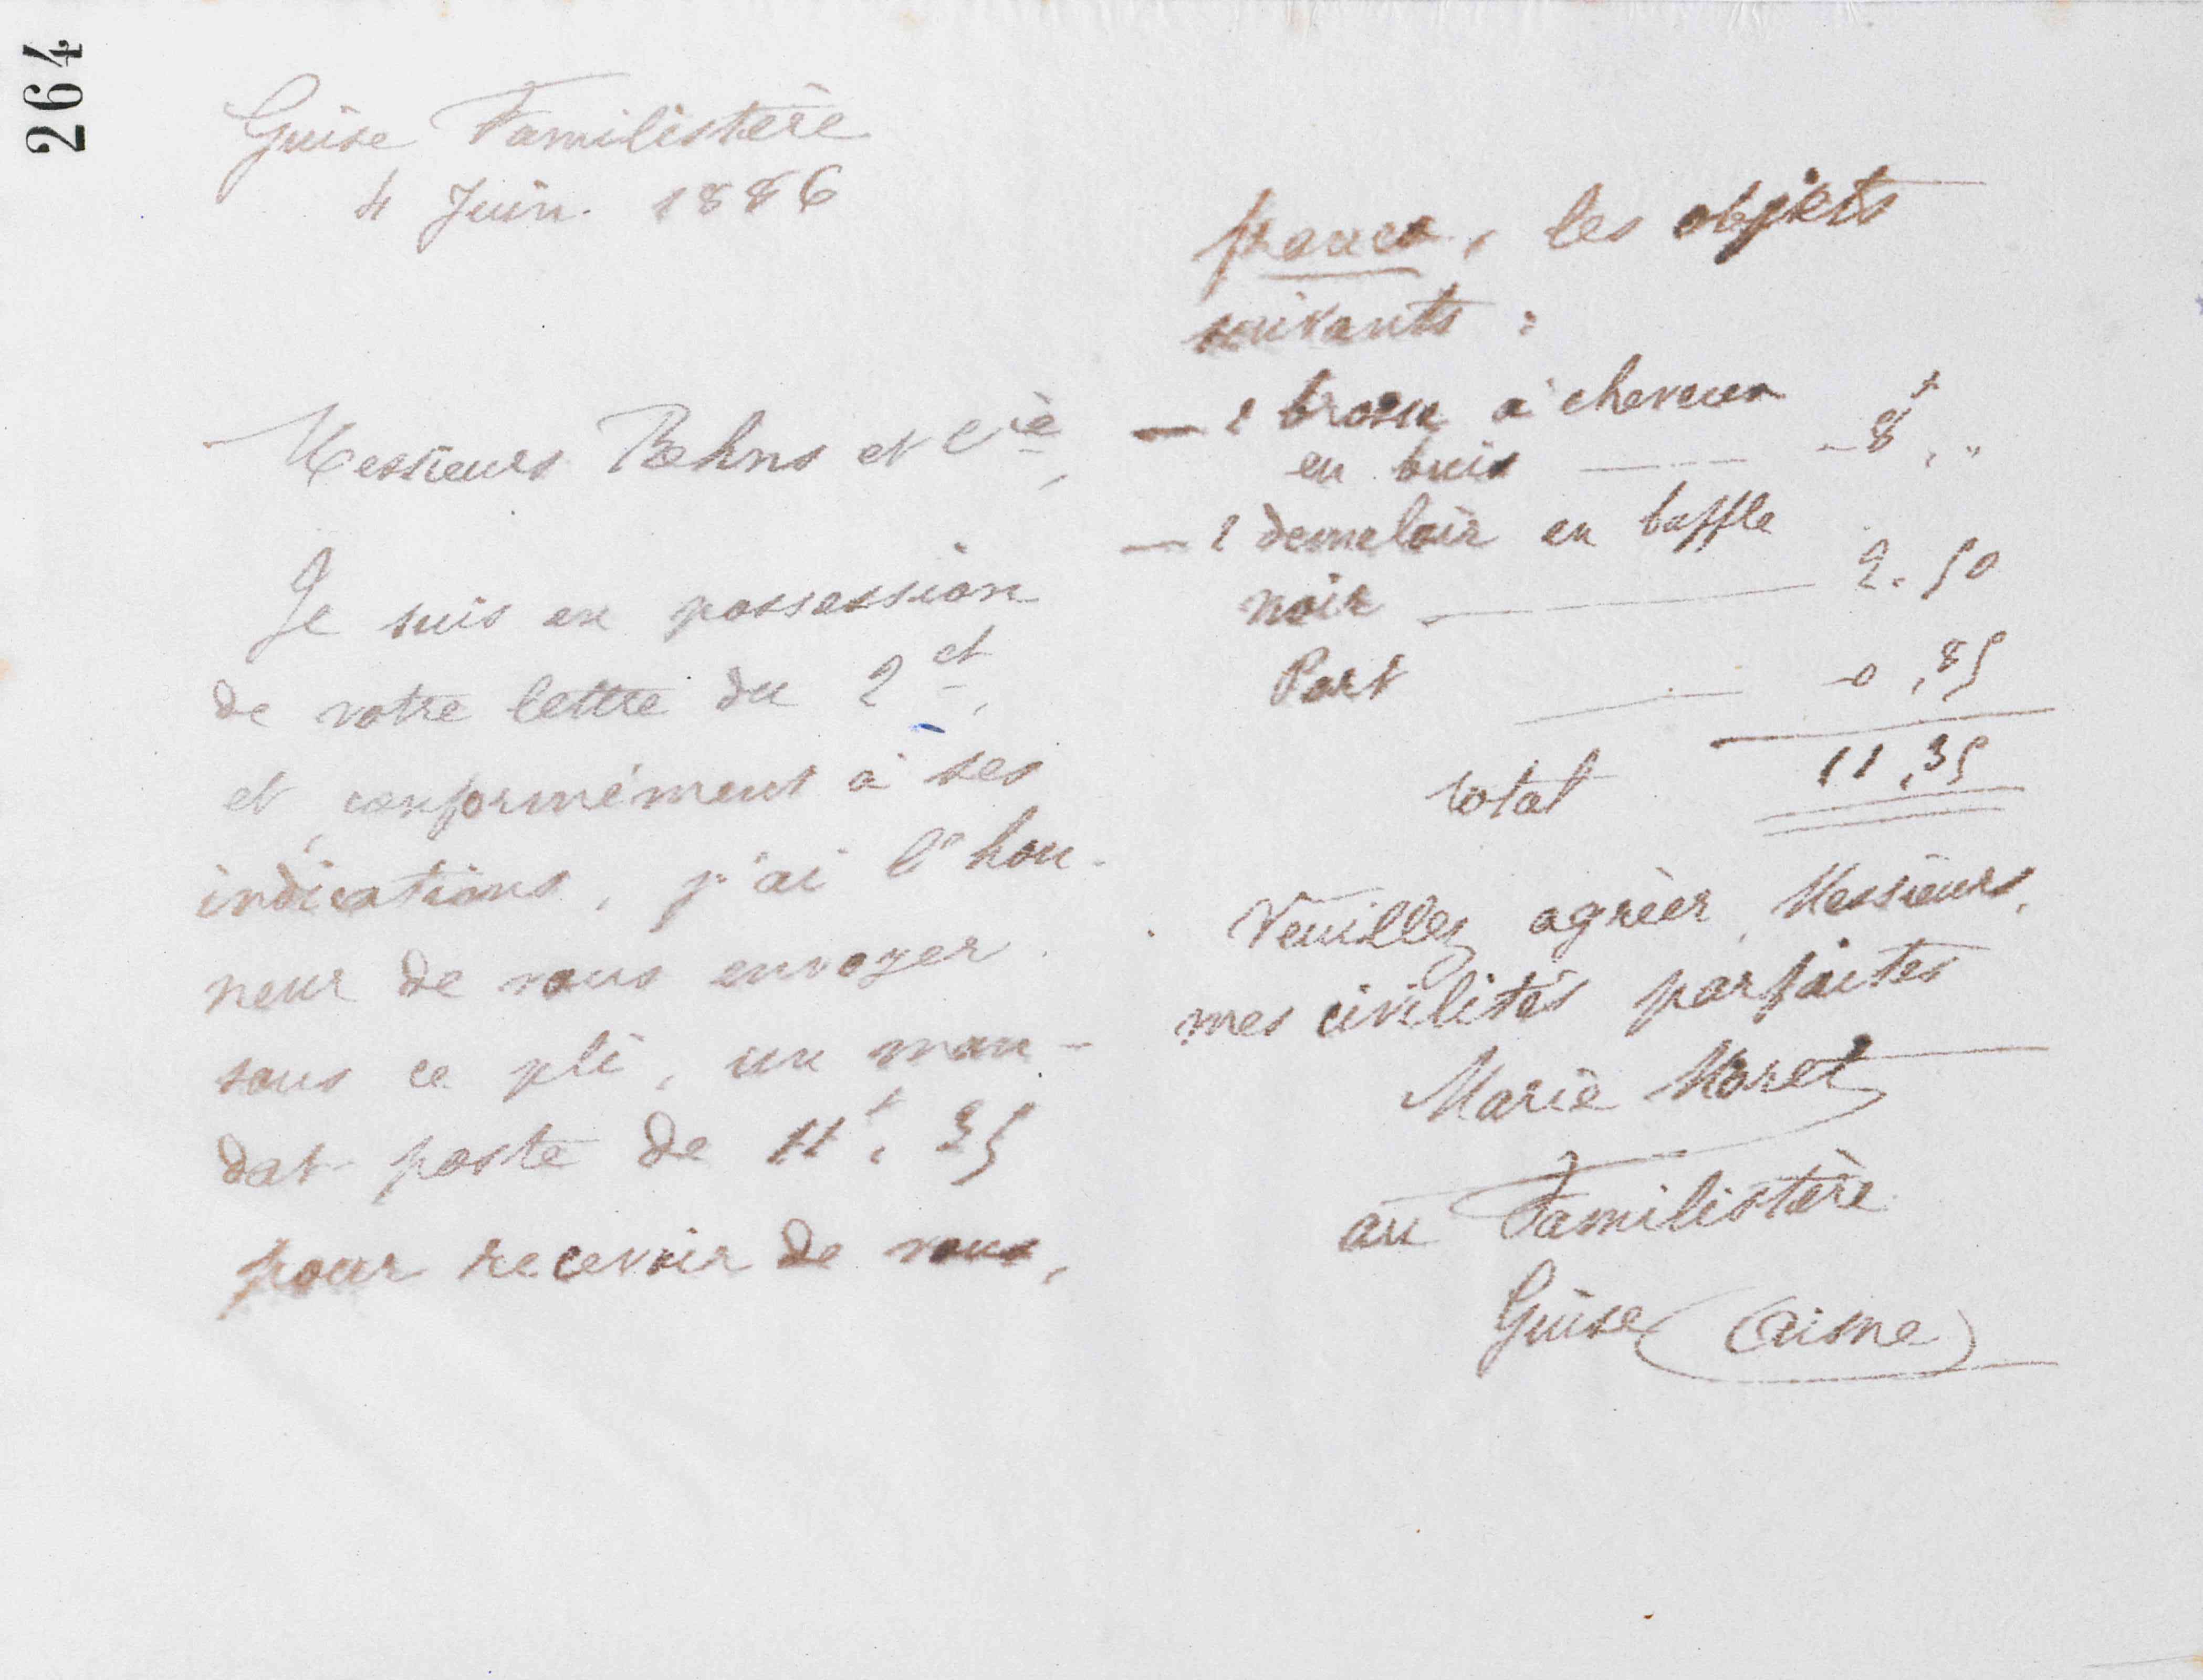 264
Guise Familistère
4 Juin. 1886
Messieurs Behns et Cie,
Je suis en possession
de votre lettre du 2 ct,
et, conformément à ses
indications, j'ai l'hon-
neur de vous envoyer
sous ce pli, un man-
dat-poste de 11f, 35
pour recevoir de vous,
franco, les objets
suivants :
— 1 brosse à cheveux
en buis — 8f, "
— 1 démeloir en buffle
noir — 2.50
Port — 0,85
total 11,35
Veuillez agréer, Messieurs,
mes civilités parfaites
Marie Moret
au Familistère
Guise (Aisne)